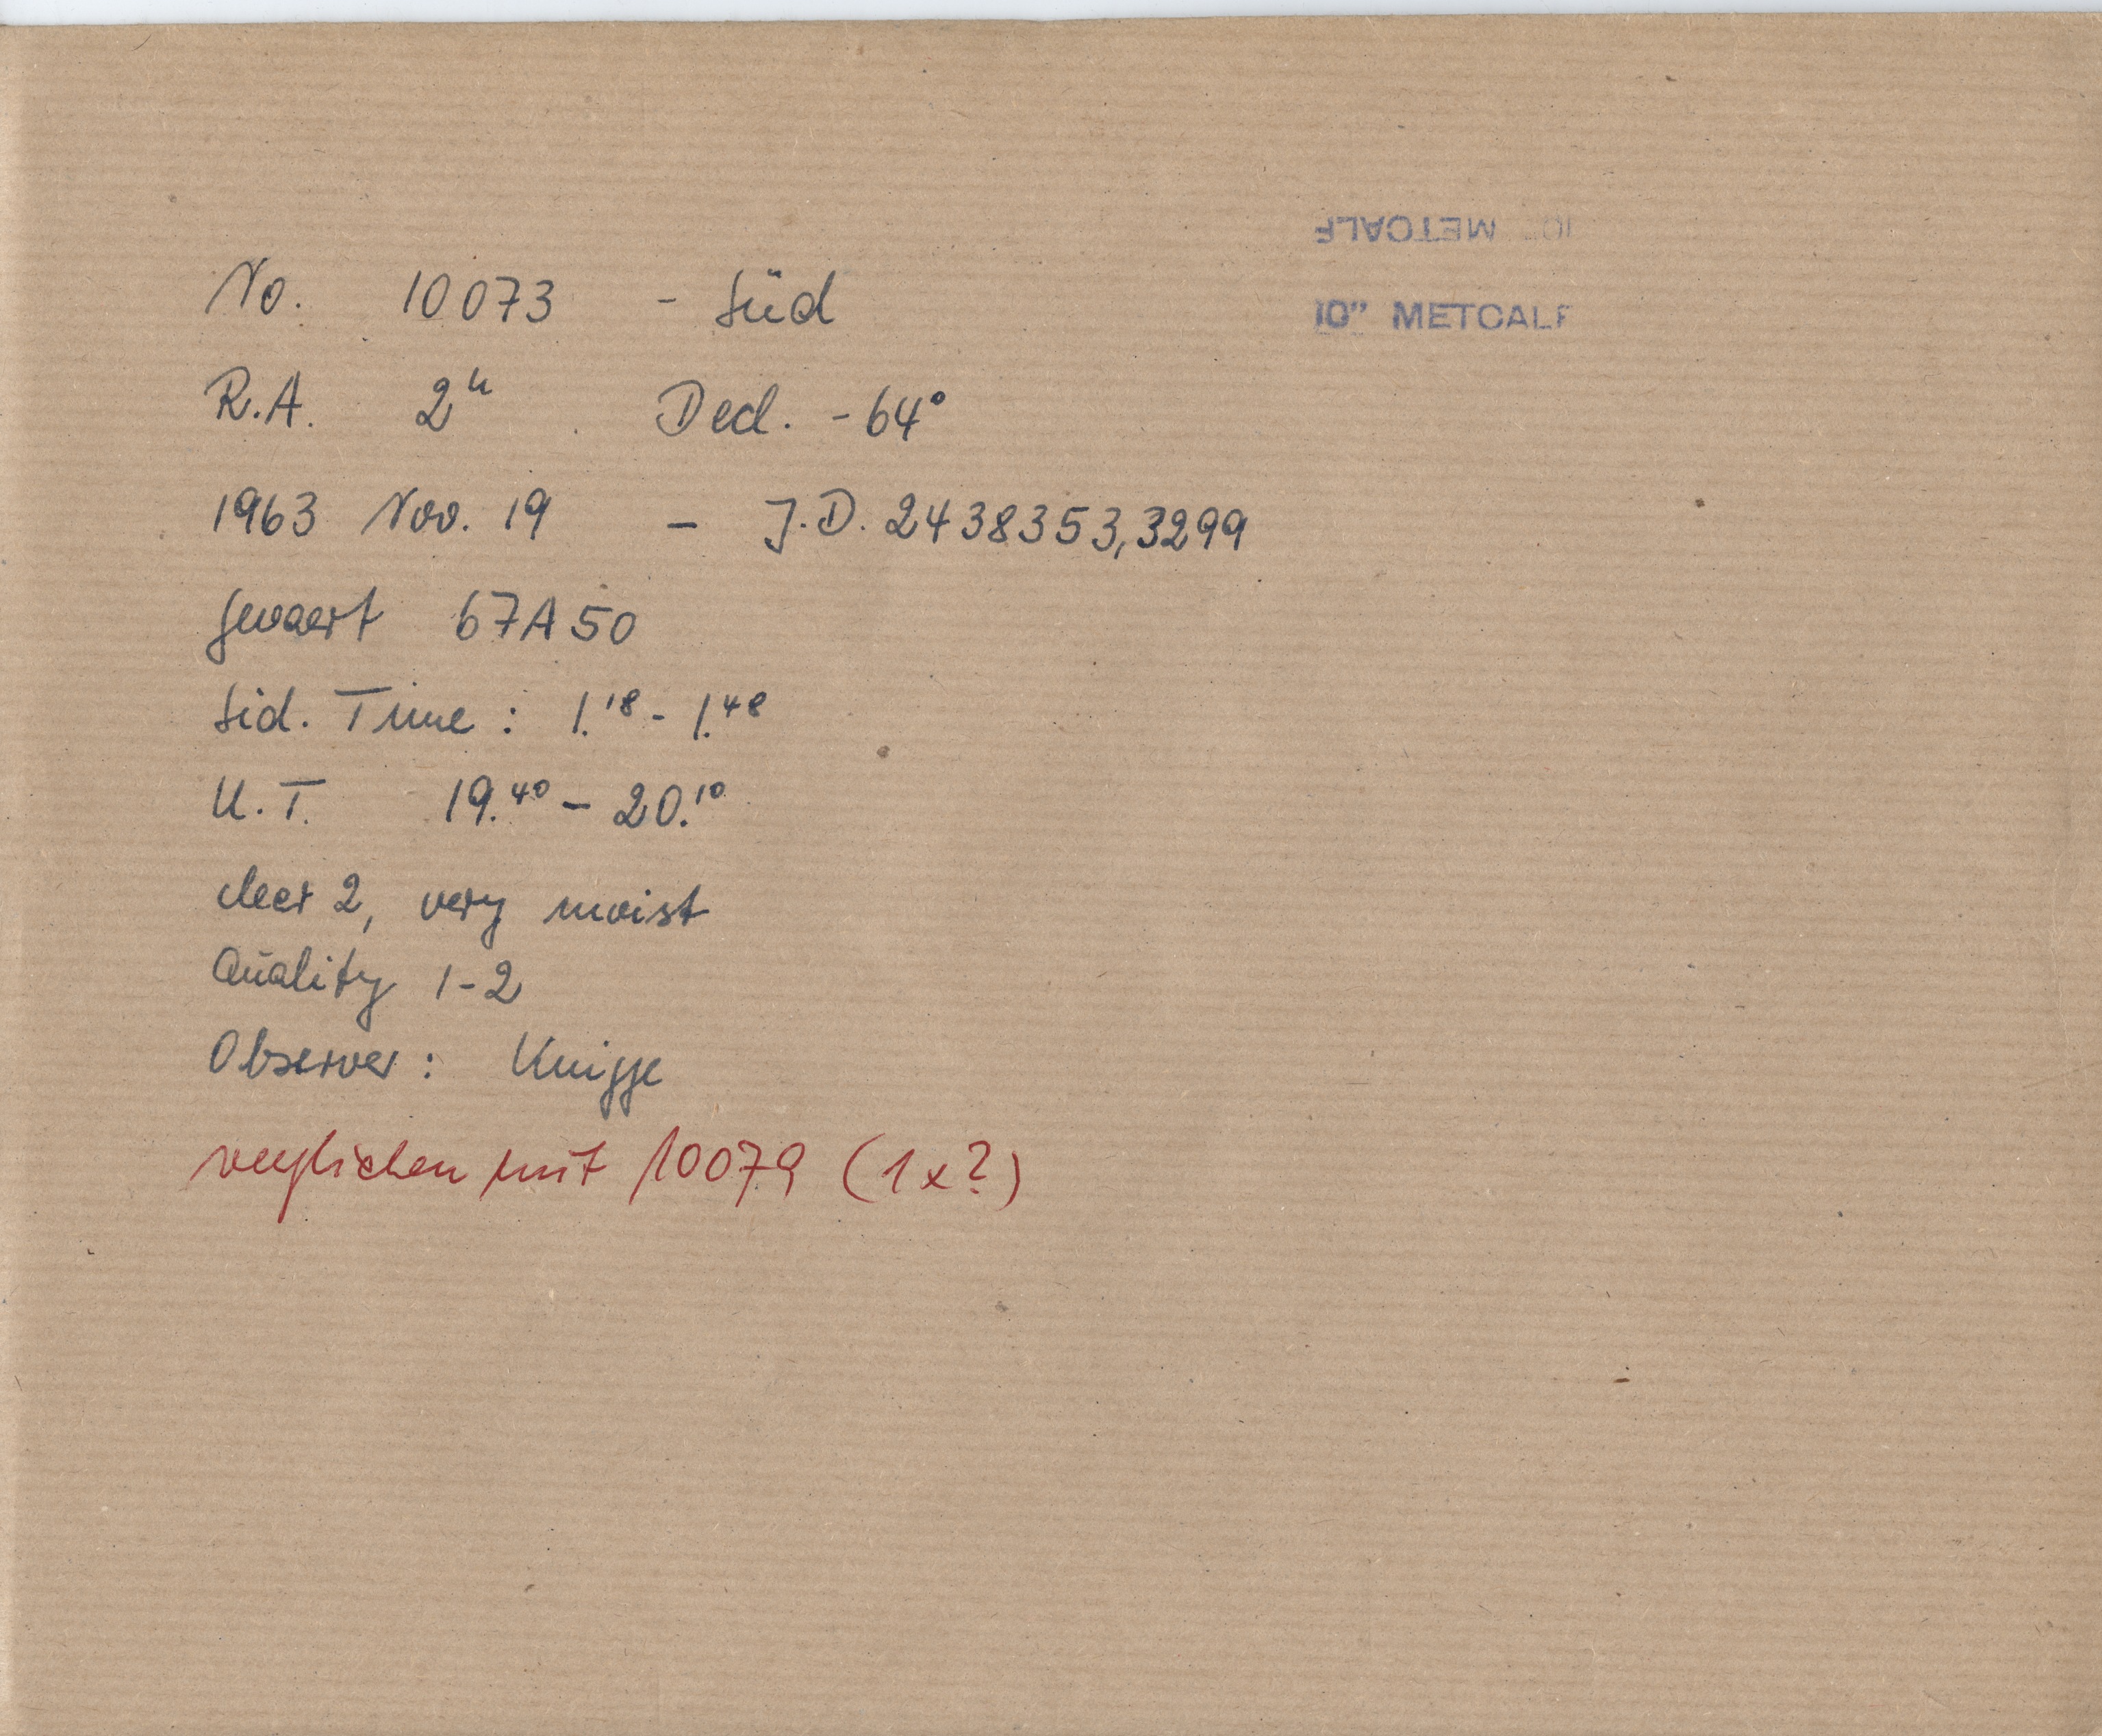 10" METCALF
10" METCALF
No. 10073 - Süd
R.A. 2h Decl. -64°
1963 Nov. 19 - J.D. 2438353,3299
Gevaert 67A50
Sid. Time : 1.18 - 1.48
U.T. 19.40 - 20.10
cleer 2, very moist
Quality 1-2
Observer : Knigge
verglichen mit 10079 (1x?)